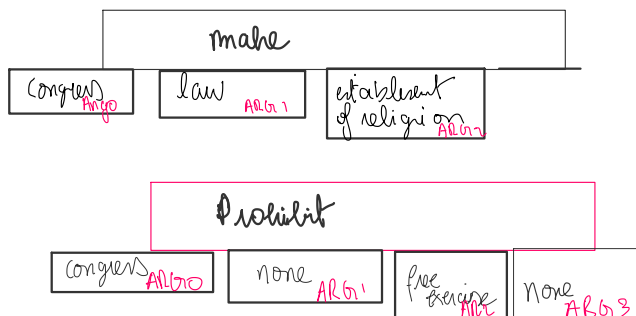 make
congress Arg0
law ARG1
establesent
of religion ARG2
Prohibit
congress ARG0
none ARG1
free
exercise ARG2
none ARG3